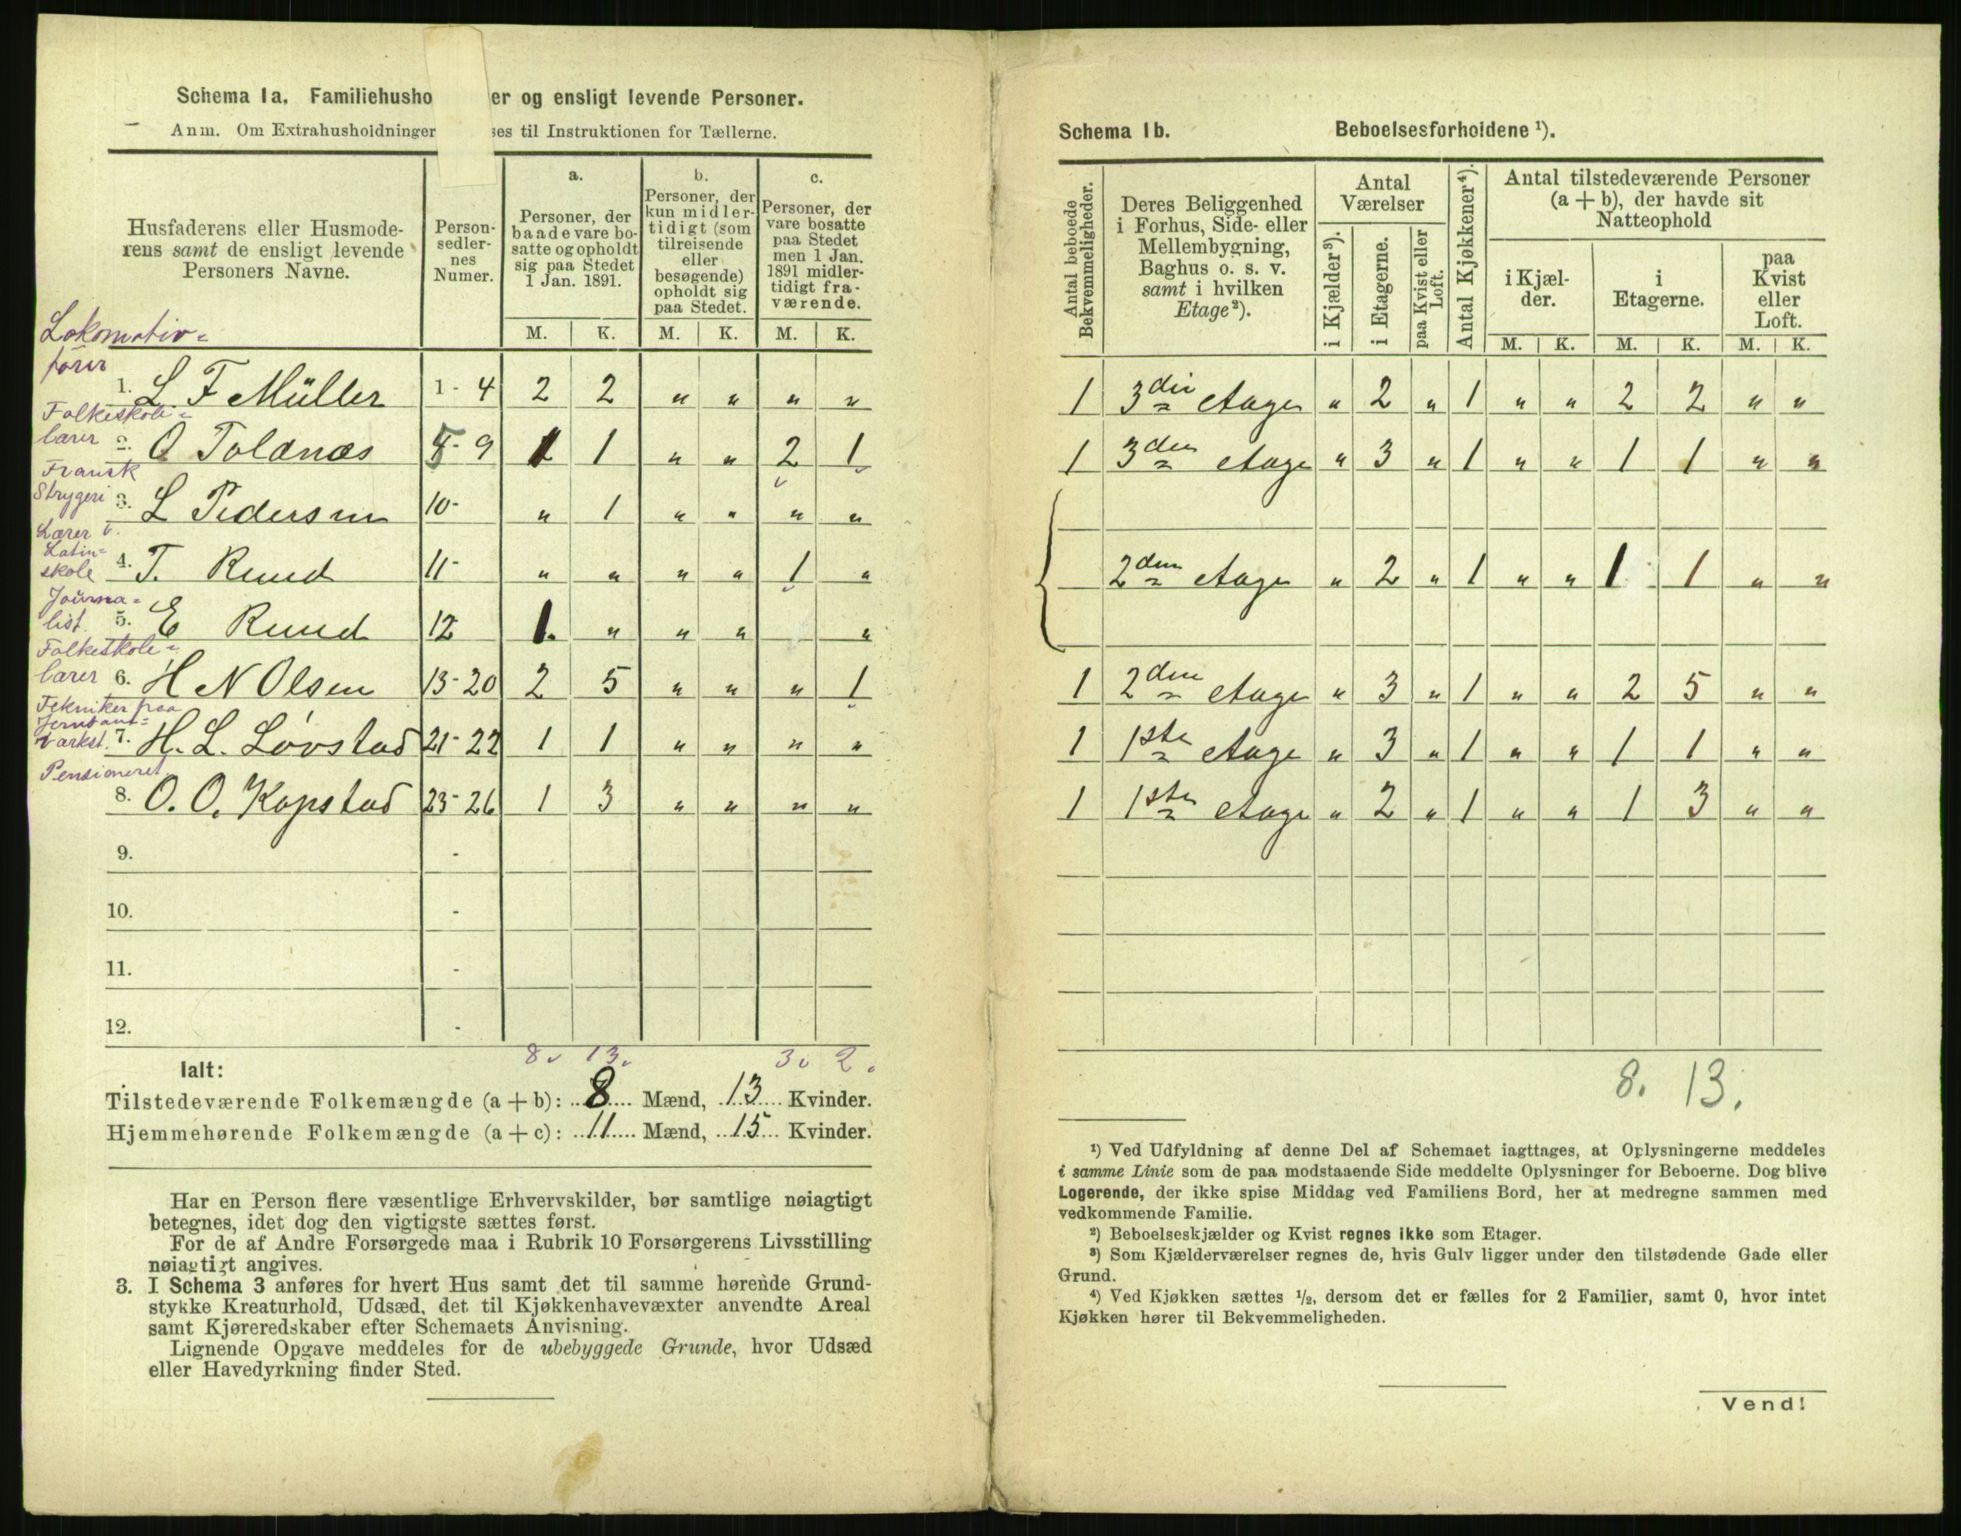 Schema 1a. Familiehusho er og ensligt levende Personer.
Anm. Om Extrahusholdninger ses til Instruktionen for Tællerne.
Husfaderens eller Husmoderens samt de ensligt levende Personers Navne.
Person-sedler-nes Numer.
a.
Personer, der baade vare bosatte og opholdt sig paa Stedet 1 Jan. 1891.
b.
Personer, der kun midlertidigt (som tilreisende eller besøgende) opholdt sig paa Stedet.
c.
Personer, der vare bosatte paa Stedet men 1 Jan. 1891 midlertidigt fraværende.
M. K. M. K. M. K.
Lokomotiv=
fører
1. L. F Müller 1 - 4 2 2 " " " "
Folkeskole=
lærer
2. O Toldnæs 5 - 9 1 1 " " 2 1
Fransk
Strygeri
3. L Pedersen 10- " 1 " " " "
Lærer v.
Latin=
skole
4. T. Ruud 11- " " " " 1 "
Journa=
list.
5. E Ruud 12 1. " " " "
Folkeskole=
lærer
6. H N Olsen 13-20 2 5 " " " 1
Tekniker paa
Jernbane=
værkst.
7. H. L. Løvstad 21-22 1 1 " " " "
Pensioneret
8. O. O. Kopstad 23-26 1 3 " " " "
9. -
10. -
11. -
12. -
8. 13. 3. 2.
Ialt:
Tilstedeværende Folkemængde (a + b): 8 Mænd, 13 Kvinder.
Hjemmehørende Folkemængde (a + c): 11 Mænd, 15 Kvinder.
Har en Person flere væsentlige Erhvervskilder, bør samtlige nøiagtigt
betegnes, idet dog den vigtigste sættes først.
For de af Andre Forsørgede maa i Rubrik 10 Forsørgerens Livsstilling
nøiagtigt angives.
3. I Schema 3 anføres for hvert Hus samt det til samme hørende Grund-
stykke Kreaturhold, Udsæd, det til Kjøkkenhavevæxter anvendte Areal
samt Kjøreredskaber efter Schemaets Anvisning.
Lignende Opgave meddeles for de ubebyggede Grunde, hvor Udsæd
eller Havedyrkning finder Sted.
Schema 1b. Beboelsesforholdene ¹).
Antal beboede Bekvemmeligheder.
Deres Beliggenhed i Forhus, Side- eller Mellembygning, Baghus o. s. v. samt i hvilken Etage²).
Antal Værelser
i Kjælder³).
i Etagerne.
paa Kvist eller Loft.
Antal Kjøkkener⁴).
Antal tilstedeværende Personer (a + b), der havde sit Natteophold
i Kjælder.
i Etagerne.
paa Kvist eller Loft.
M. K. M. K. M. K.
1 3die Etage " 2 " 1 " " 2 2 " "
1 3den Etage " 3 " 1 " " 1 1 " "
2den Etage " 2 " 1 " " 1 1 " "
1 2den Etage " 3 " 1 " " 2 5 " "
1 1ste Etage " 3 " 1 " " 1 1 " "
1 1ste Etage " 2 " 1 " " 1 3 " "
8. 13.
¹) Ved Udfyldning af denne Del af Schemaet iagttages, at Oplysningerne meddeles
i samme Linie som de paa modstaaende Side meddelte Oplysninger for Beboerne. Dog blive
Logerende, der ikke spise Middag ved Familiens Bord, her at medregne sammen med
vedkommende Familie.
²) Beboelseskjælder og Kvist regnes ikke som Etager.
³) Som Kjælderværelser regnes de, hvis Gulv ligger under den tilstødende Gade eller
Grund.
⁴) Ved Kjøkken sættes ½, dersom det er fælles for 2 Familier, samt 0, hvor intet
Kjøkken hører til Bekvemmeligheden.
Vend!